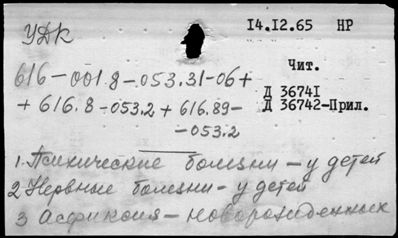 УДК
14.12.65 НР
616-001.8-053.31-06+
Чит.
+ 616.8-053.2 + 616.89-
-053.2
Д 36741
Д 36742-Прил.
1. Психические болезни - у детей
2 Нервные болезни - у детей
3 Асфиксия - новорожденных